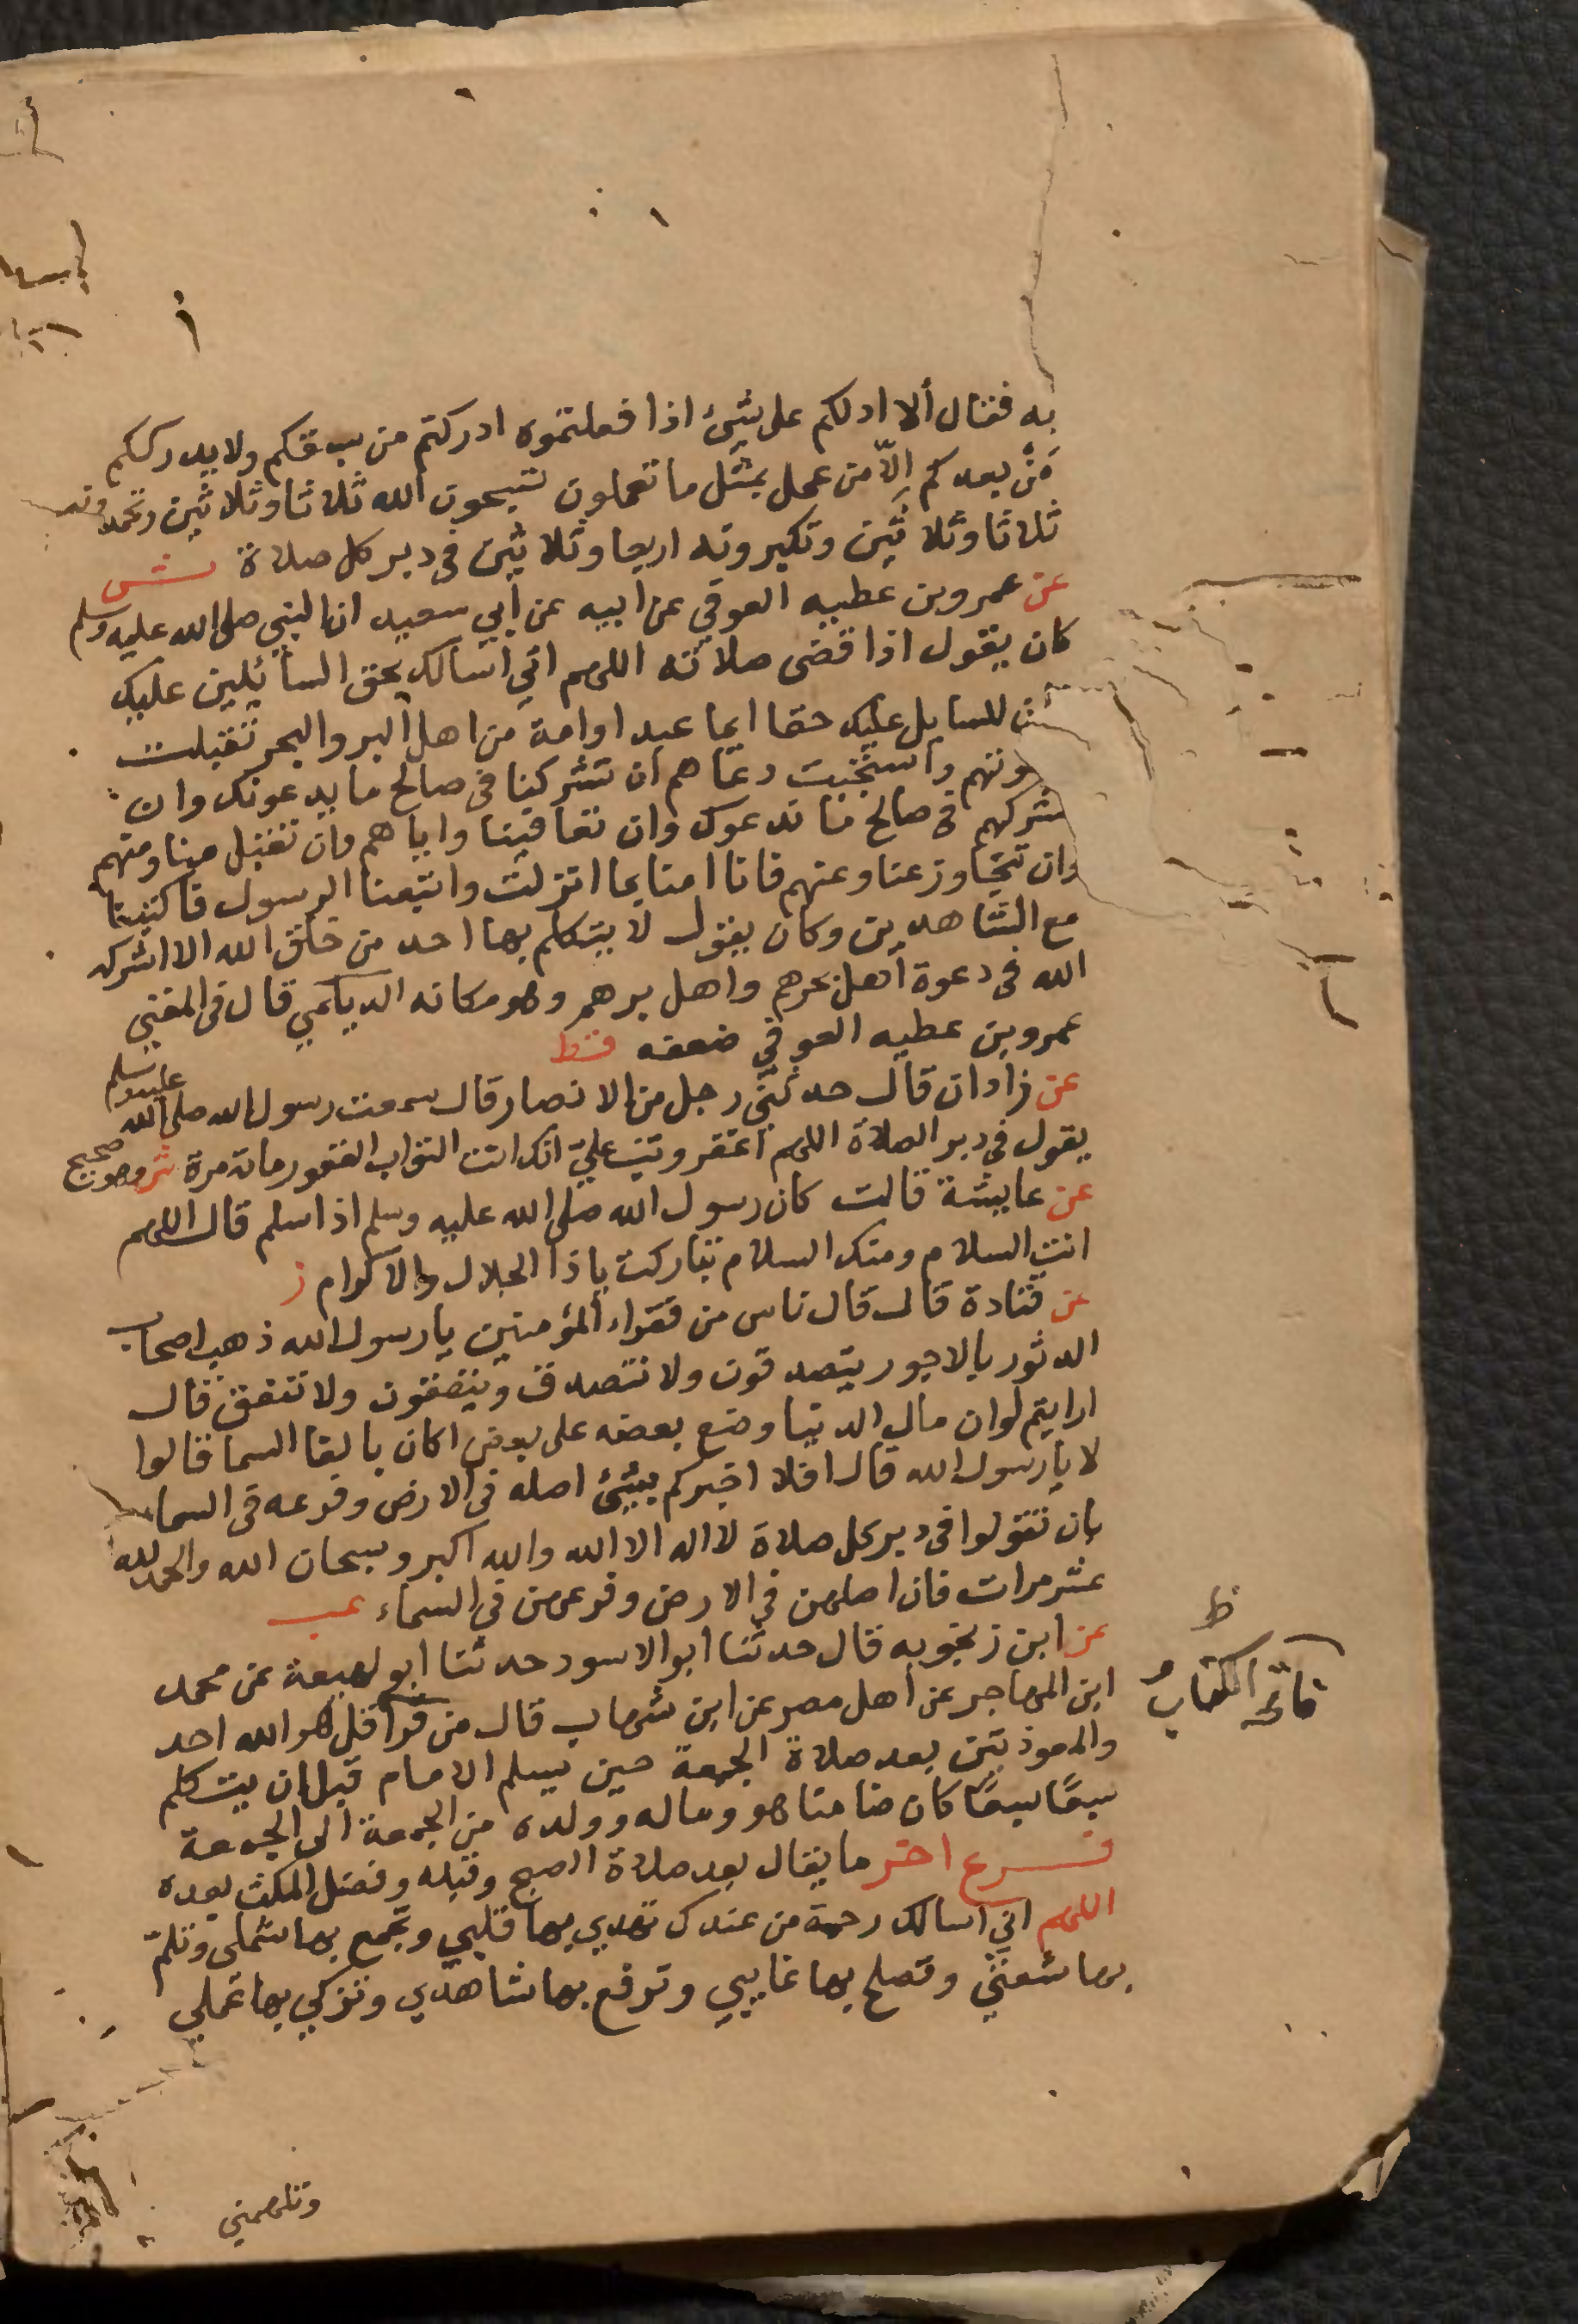 به فقال ألا ادلكم على شيئ اذا فعلتموه ادركتم من سبقكم ولا يدرككم
مَنْ بعدكم إلّا من عمل بمثل ما تعملون تسبحون الله ثلاثا وثلاثين وتحمدونه
ثلاثا وثلاثين وتكبرونه اربعا وثلاثين فى دبر كل صلاة ش
عن عمرو بن عطيه العوفي عن ابيه عن أبي سعيد ان النبي صلى الله عليه وسلم
كان يقول اذا قضى صلاته اللهم اني اسالك بحق السائلين عليك
للسايل عليك حقا ايما عبد او امة من اهل البر والبحر تقبلت
وتهم واستجبت دعاهم ان تشركنا فى صالح ما يدعونك وان
تشركهم فى صالح ما ندعوك وان تعافينا واياهم وان تقبل منا ومنهم
وان تتجاوز عنا وعنهم فانا امنا بما انزلت واتبعنا الرسول فاكتبنا
مع الشاهدين وكان يقول لا يتكلم بها احد من خلق الله الا اشركه
الله فى دعوة أهل بحرهم واهل برهم وهو مكانه الديلمي قال فى المغني
عمرو بن عطيه العوفي ضعفه قط
عن زادان قال حدثني رجل من الانصار قال سمعت رسول الله صلى الله عليه وسلم
يقول فى دبر الصلاة اللهم اغفر وتب علي انك انت التواب الغفور مائة مرة ش وهو صحيح
عن عايشة قالت كان رسول الله صلى الله عليه وسلم اذا سلم قال اللهم
انت السلام ومنك السلام تباركت يا ذا الجلال والاكرام ز
عن قتادة قال قال ناس من فقراء المؤمنين يا رسول الله ذهب اصحاب
الدثور بالاجور يتصدقون ولا نتصدق وينفقون ولا ننفق قال
ارايتم لو ان مال الدنيا وضع بعضه على بعض اكان بالغا السما قالوا
لا يا رسول الله قال افلا اخبركم بشيئ اصله فى الارض وفرعه فى السما
بان تقولوا فى دبر كل صلاة لا اله الا الله والله اكبر وسبحان الله والحمد لله
عشر مرات فان اصلهن في الارض وفرعهن في السماء عب
عن ابن زنجويه قال حدثنا ابو الاسود حدثنا ابو لهيعة عن محمد
ابن المهاجر عن أهل مصر عن ابن شهاب قال من قرأ قل هو الله احد
فاتحة الكتاب
ظ
والمعوذتين بعد صلاة الجمعة حين يسلم الامام قبل ان يتكلم
سبعًا سبعًا كان ضامنا هو وماله وولده من الجمعة الى الجمعة
فرع اخر ما يقال بعد صلاة الصبح وقبله وفضل المكث بعده
اللهم اني اسالك رحمة من عندك تهدي بها قلبي وتجمع بها شملى وتلمّ
بها شعثي وتصلح بها غايبي وترفع بها شاهدي وتزكي بها عملي
وتلهمني